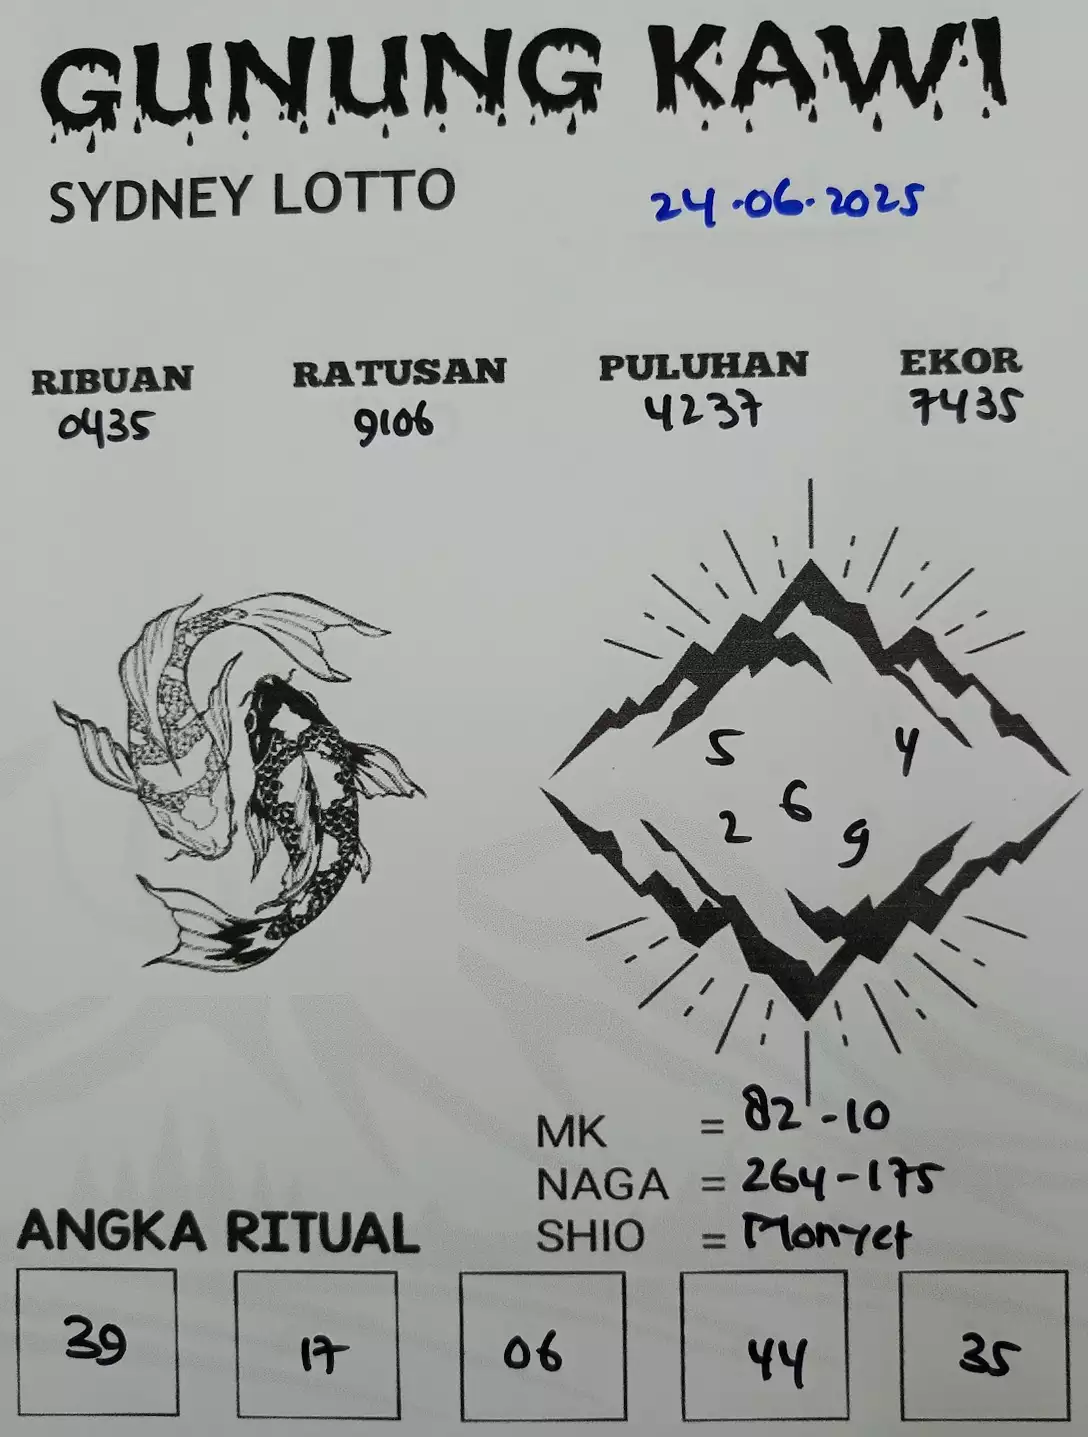 GUNUNG KAWI
SYDNEY LOTTO 24-06-2025
RIBUAN RATUSAN PULUHAN EKOR
0435 9106 4237 7435
5 4
6
2 9
MK = 82-10
NAGA = 264-175
SHIO = Monyet
ANGKA RITUAL
39 17 06 44 35